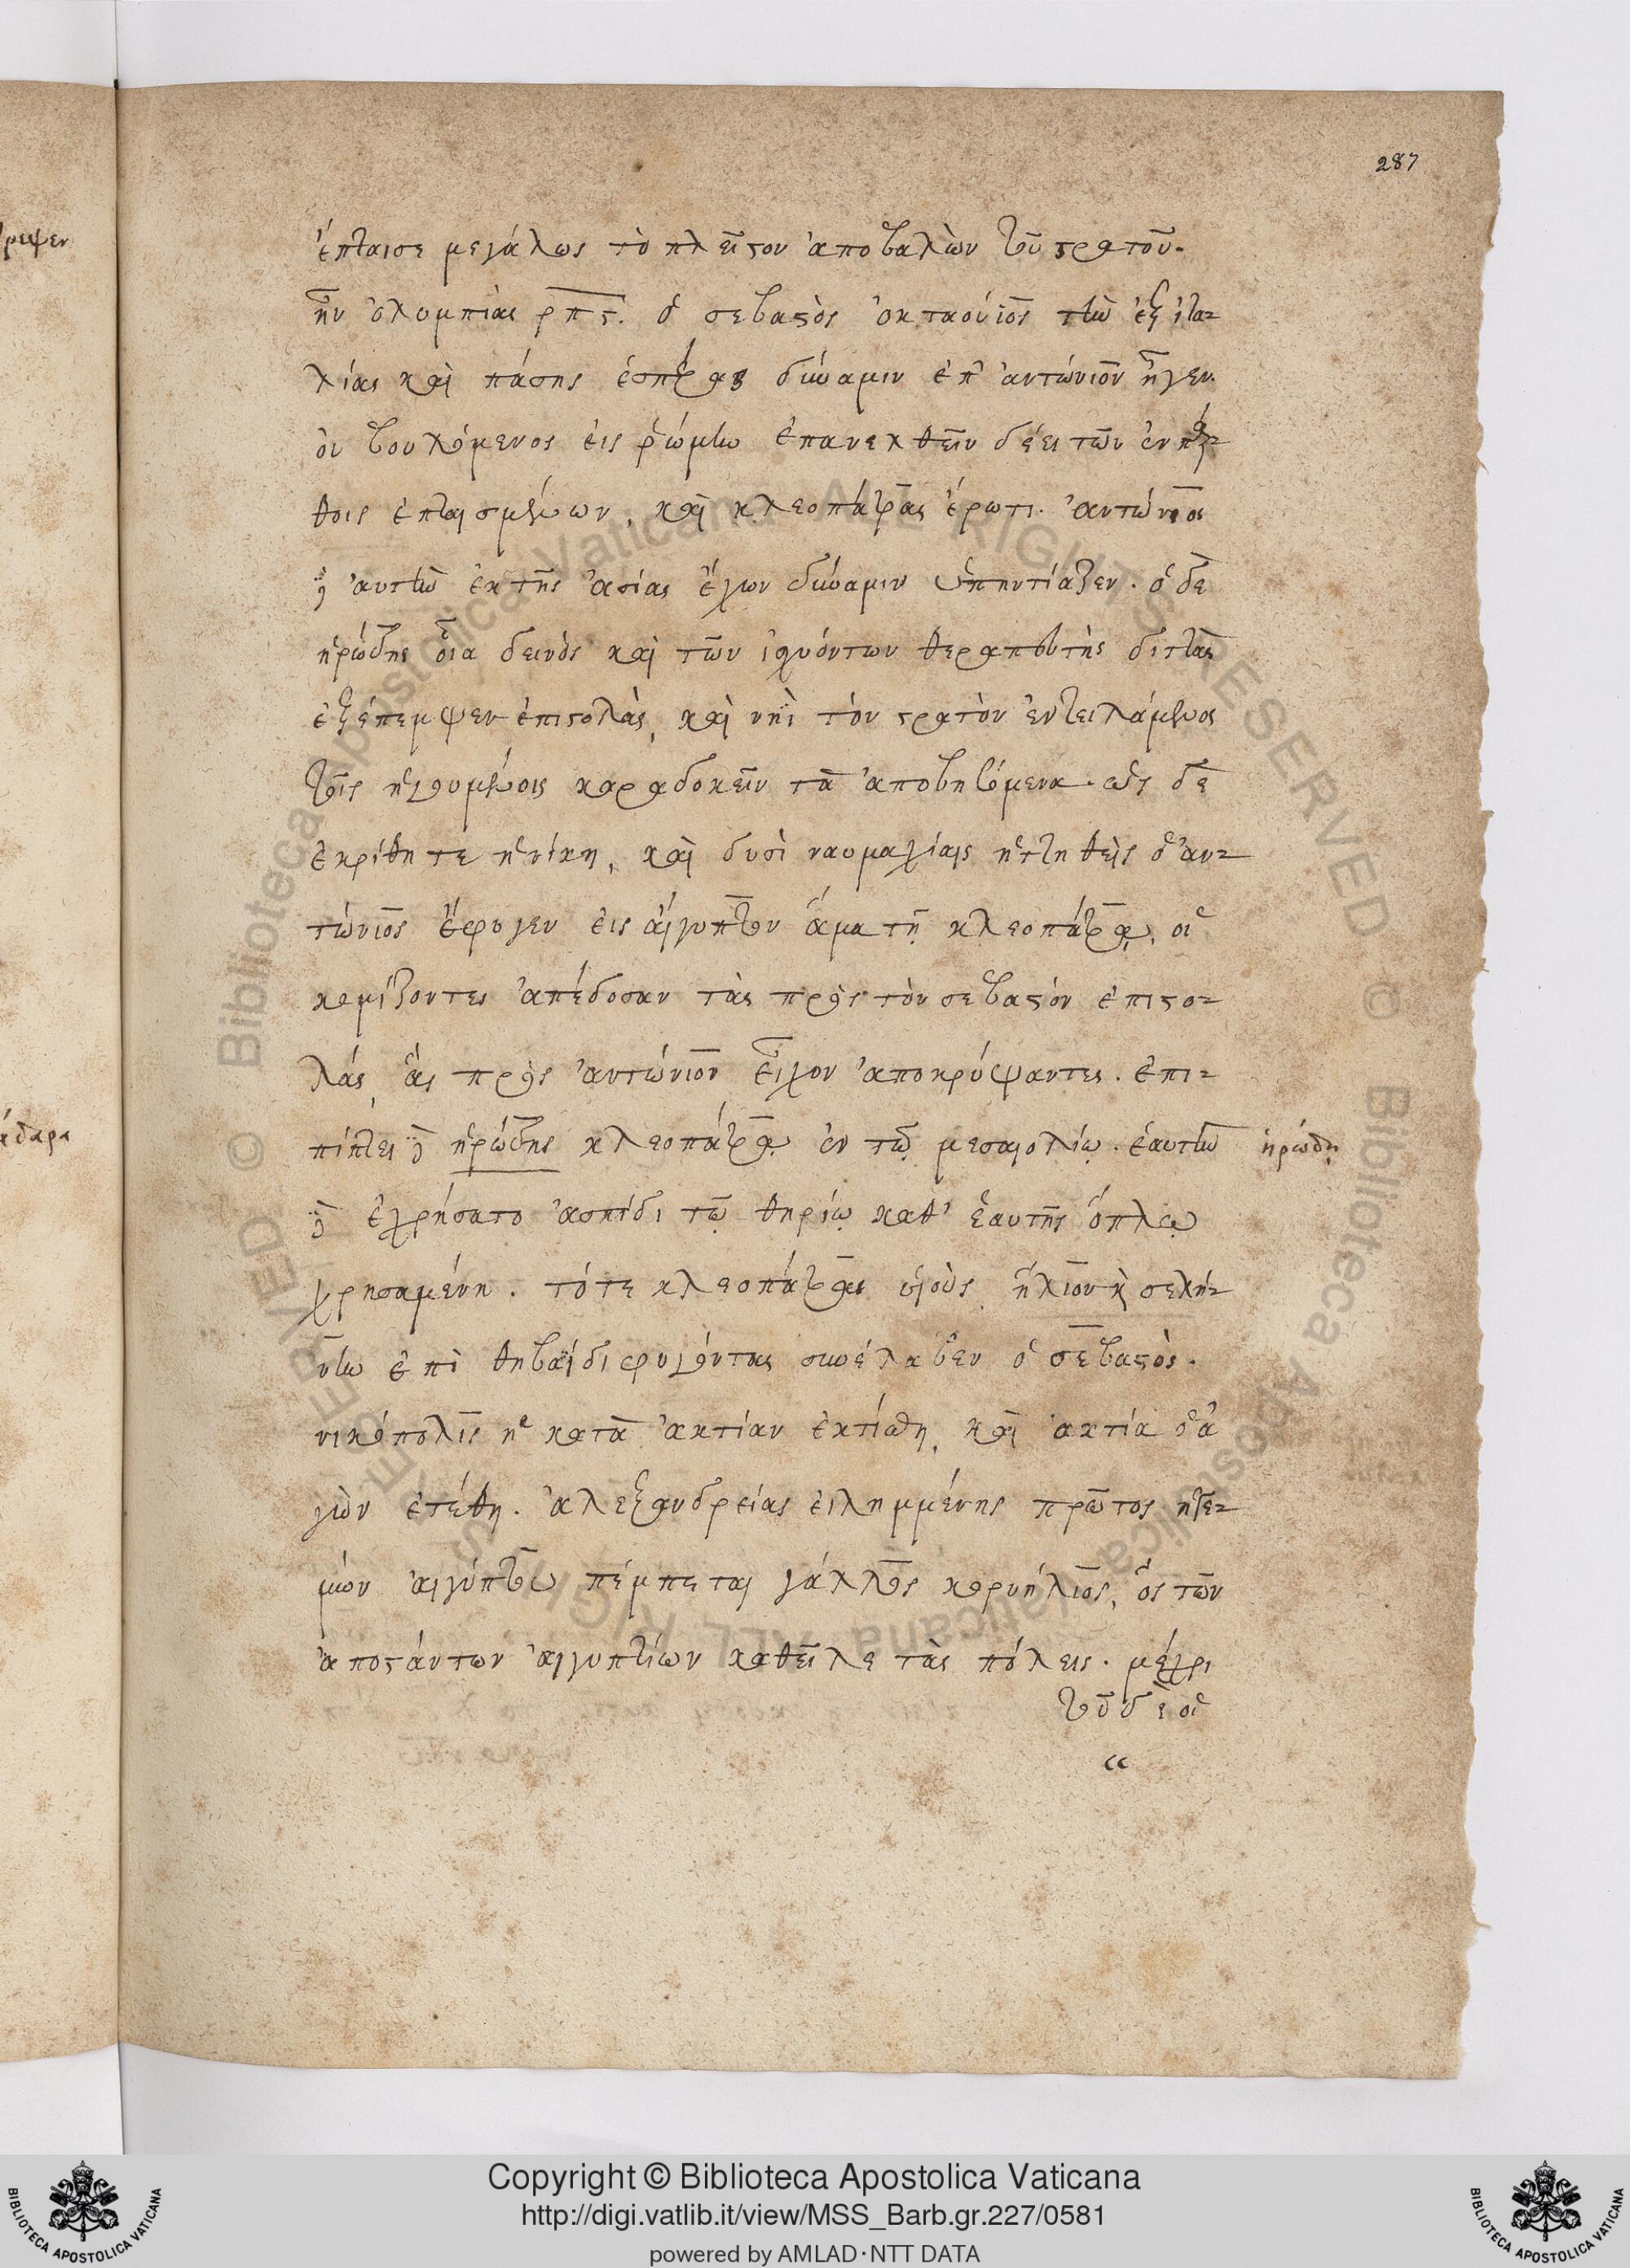 287
ρεψεν
ἔπταισε μεγάλως τὸ πλεῖστον ἀποβαλὼν τοῦ στρατοῦ.
ἦν ὀλυμπίας ρπς. ὁ σεβαστὸς ὀκταούιος τὴν ἐξ ἰτα-
λίας καὶ πάσης ἑσπέρας δύναμιν ἐπ' ἀντώνιον ἦγεν.
οὐ βουλόμενος εἰς ῥώμην ἐπανελθεῖν δέει τῶν ἐν πάρ-
θοις ἐπταισμένων, καὶ κλεοπάτρας ἔρωτι. ἀντώνιος
δὲ αὐτὴν ἐκ τῆς ἀσίας ἔχων δύναμιν ὑπηντίαζεν. ὁ δὲ
ἡρώδης οἷα δεινὸς καὶ τῶν ἰσχυόντων θεραπευτὴς διττὰς
ἐξέπεμψεν ἐπιστολὰς, καὶ νηὶ τὸν στρατὸν ἐντειλάμενος
τοῖς ἡγουμένοις καραδοκεῖν τὰ ἀποβησόμενα. ὡς δὲ
ἐκρίθη τε ἡ νίκη, καὶ δυσὶ ναυμαχίαις ἡττηθεὶς ὁ ἀν-
τώνιος ἔφυγεν εἰς αἴγυπτον ἅμα τῇ κλεοπάτρᾳ, οἱ
κομίζοντες ἀπέδοσαν τὰς πρὸς τὸν σεβαστὸν ἐπιστο-
λάς, ἃς πρὸς ἀντώνιον εἶχον ἀποκρύψαντες. ἐπι-
πίπτει δὲ ἡρώδης κλεοπάτρᾳ ἐν τῷ μεσαιολίῳ. ἑαυτὴν
ἡρώδῃ
άδαρα
δὲ ἐχρήσατο ἀσπίδι τῷ θηρίῳ καθ' ἑαυτῆς ὅπλῳ
χρησαμένη. τότε κλεοπάτρας υἱοὺς ἥλιον καὶ σελή-
νην ἐπὶ θηβαΐδι φυγόντας συνέλαβεν ὁ σεβαστὸς.
νικόπολις ἡ κατὰ ἀκτίαν ἐκτίσθη, καὶ ἀκτία ὁ ἀ
γὼν ἐτέθη. ἀλεξανδρείας εἰλημμένης πρῶτος ἡγε-
μὼν αἰγύπτου πέμπεται γάλλος κορνήλιος, ὃς τῶν
ἀποστάντων αἰγυπτίων καθεῖλε τὰς πόλεις. μέχρι
τοῦδε οἱ
Copyright © Biblioteca Apostolica Vaticana
http://digi.vatlib.it/view/MSS_Barb.gr.227/0581
powered by AMLAD·NTT DATA
BIBLIOTECA APOSTOLICA VATICANA
BIBLIOTECA APOSTOLICA VATICANA